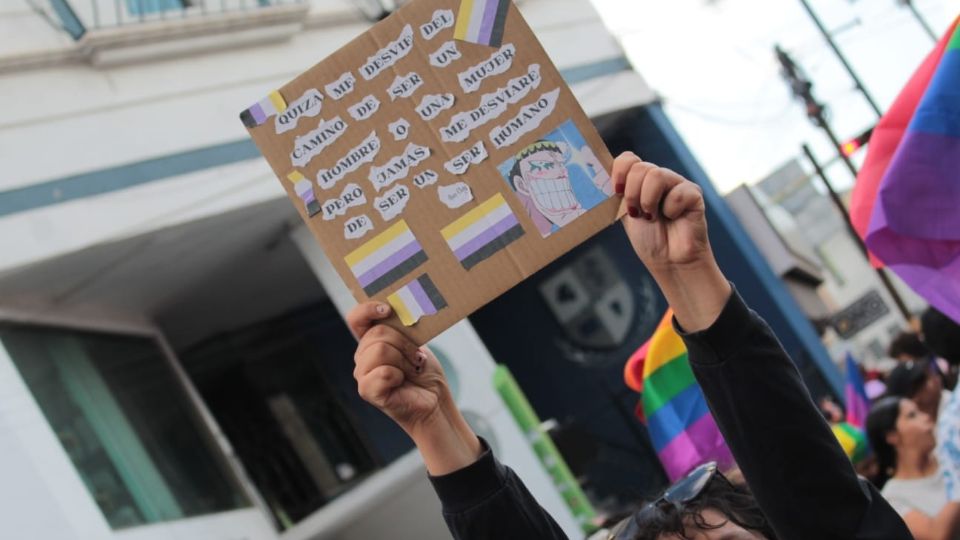 QUIZA ME DESVIE DEL
CAMINO DE SER UN
HOMBRE O UNA MUJER
PERO JAMAS ME DESVIARE
DE SER UN SER HUMANO